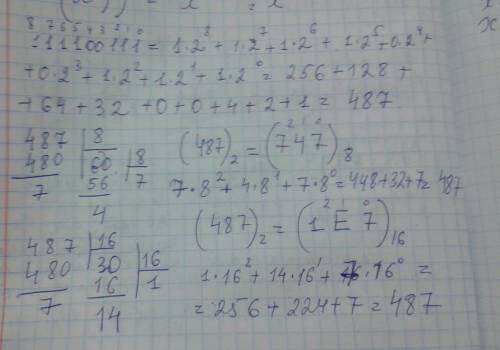 8 7 6 5 4 3 2 1 0
111100111 = 1·2⁸ + 1·2⁷ + 1·2⁶ + 1·2⁵ + 0·2⁴ +
+0·2³ + 1·2² + 1·2¹ + 1·2⁰ = 256 + 128 +
+64 + 32 + 0 + 0 + 4 + 2 + 1 = 487
487 | 8
480 | 60 | 8
7 56 7
4
(487)₂ = (7²4¹7⁰)₈
7·8² + 4·8¹ + 7·8⁰ = 448 + 32 + 7 = 487
(487)₂ = (1²E¹7⁰)₁₆
487 | 16
480 | 30 | 16
7 16 1
14
1·16² + 14·16¹ + 7·16⁰ =
= 256 + 224 + 7 = 487